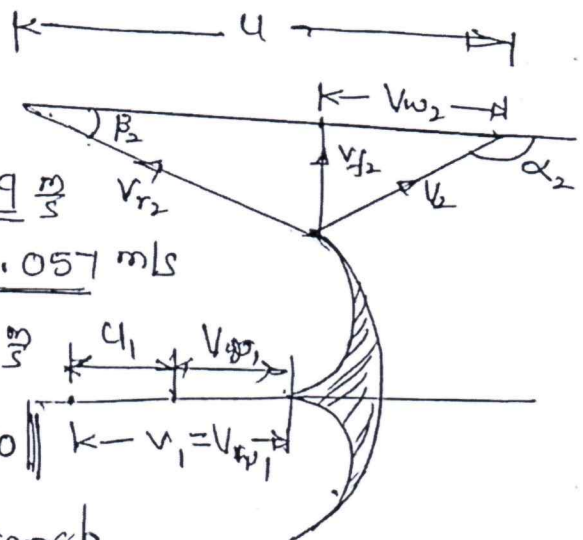 u
Vw₂
β₂
Vf₂
α₂
9 m/s
Vr₂
V₂
.057 m/s
m/s
u₁
Vr₁
0
V₁ = Vw₁